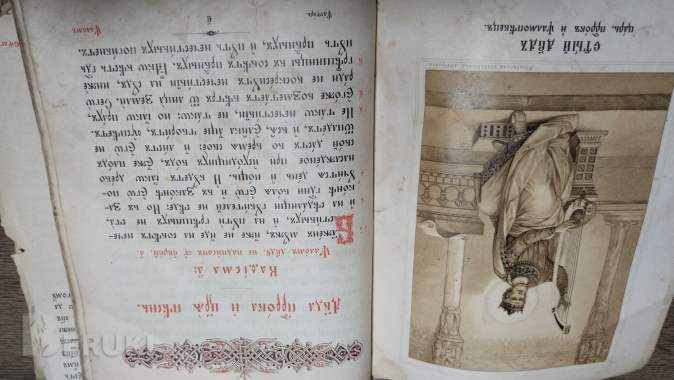 Дв҃да прⷪ҇ро́ка и҆ цр҃ѧ̀ пѣ́снь.
Каѳі́сма а҃:
Ѱало́мъ дв҃дꙋ, не надпи́санъ ᲂу҆ є҆вре́й, а҃.
Бл҃же́нъ мꙋ́жъ, и҆́же не и҆́де на совѣ́тъ нече-
сти́выхъ, и҆ на пꙋтѝ грѣ́шныхъ не ста̀,
и҆ на сѣда́лищи гꙋби́телей не сѣ́де: Но въ за-
ко́нѣ гдⷭ҇ни во́лѧ є҆гѡ̀, и҆ въ зако́нѣ є҆гѡ̀ по-
ꙋчи́тсѧ де́нь и҆ но́щь. И҆ бꙋ́детъ ꙗ҆́кѡ дре́во
насажде́ное при и҆схо́дищихъ во́дъ, є҆́же пло́дъ
сво́й да́стъ во вре́мѧ своѐ: и҆ ли́стъ є҆гѡ̀ не
ѿпаде́тъ, и҆ всѧ̑ є҆ли̑ка а҆́ще твори́тъ, ᲂу҆спѣ́етъ.
Не та́кѡ нечести́вїи, не та́кѡ: но ꙗ҆́кѡ пра́хъ,
є҆го́же возмета́етъ вѣ́тръ ѿ лица̀ землѝ. Сегѡ̀
ра́ди не воскре́снꙋтъ нечести́вїи на сꙋ́дъ, нижѐ
грѣ̑шницы въ совѣ́тъ првⷣныхъ. Ꙗ҆́кѡ вѣ́сть гдⷭ҇ь
пꙋ́ть првⷣныхъ, и҆ пꙋ́ть нечести́выхъ поги́бнетъ.
Ѱалти́рь.
Ѱало́мъ
ст҃ы́й дв҃дъ
цр҃ь, прⷪ҇ро́къ и҆ ѱалмопѣ́вецъ.